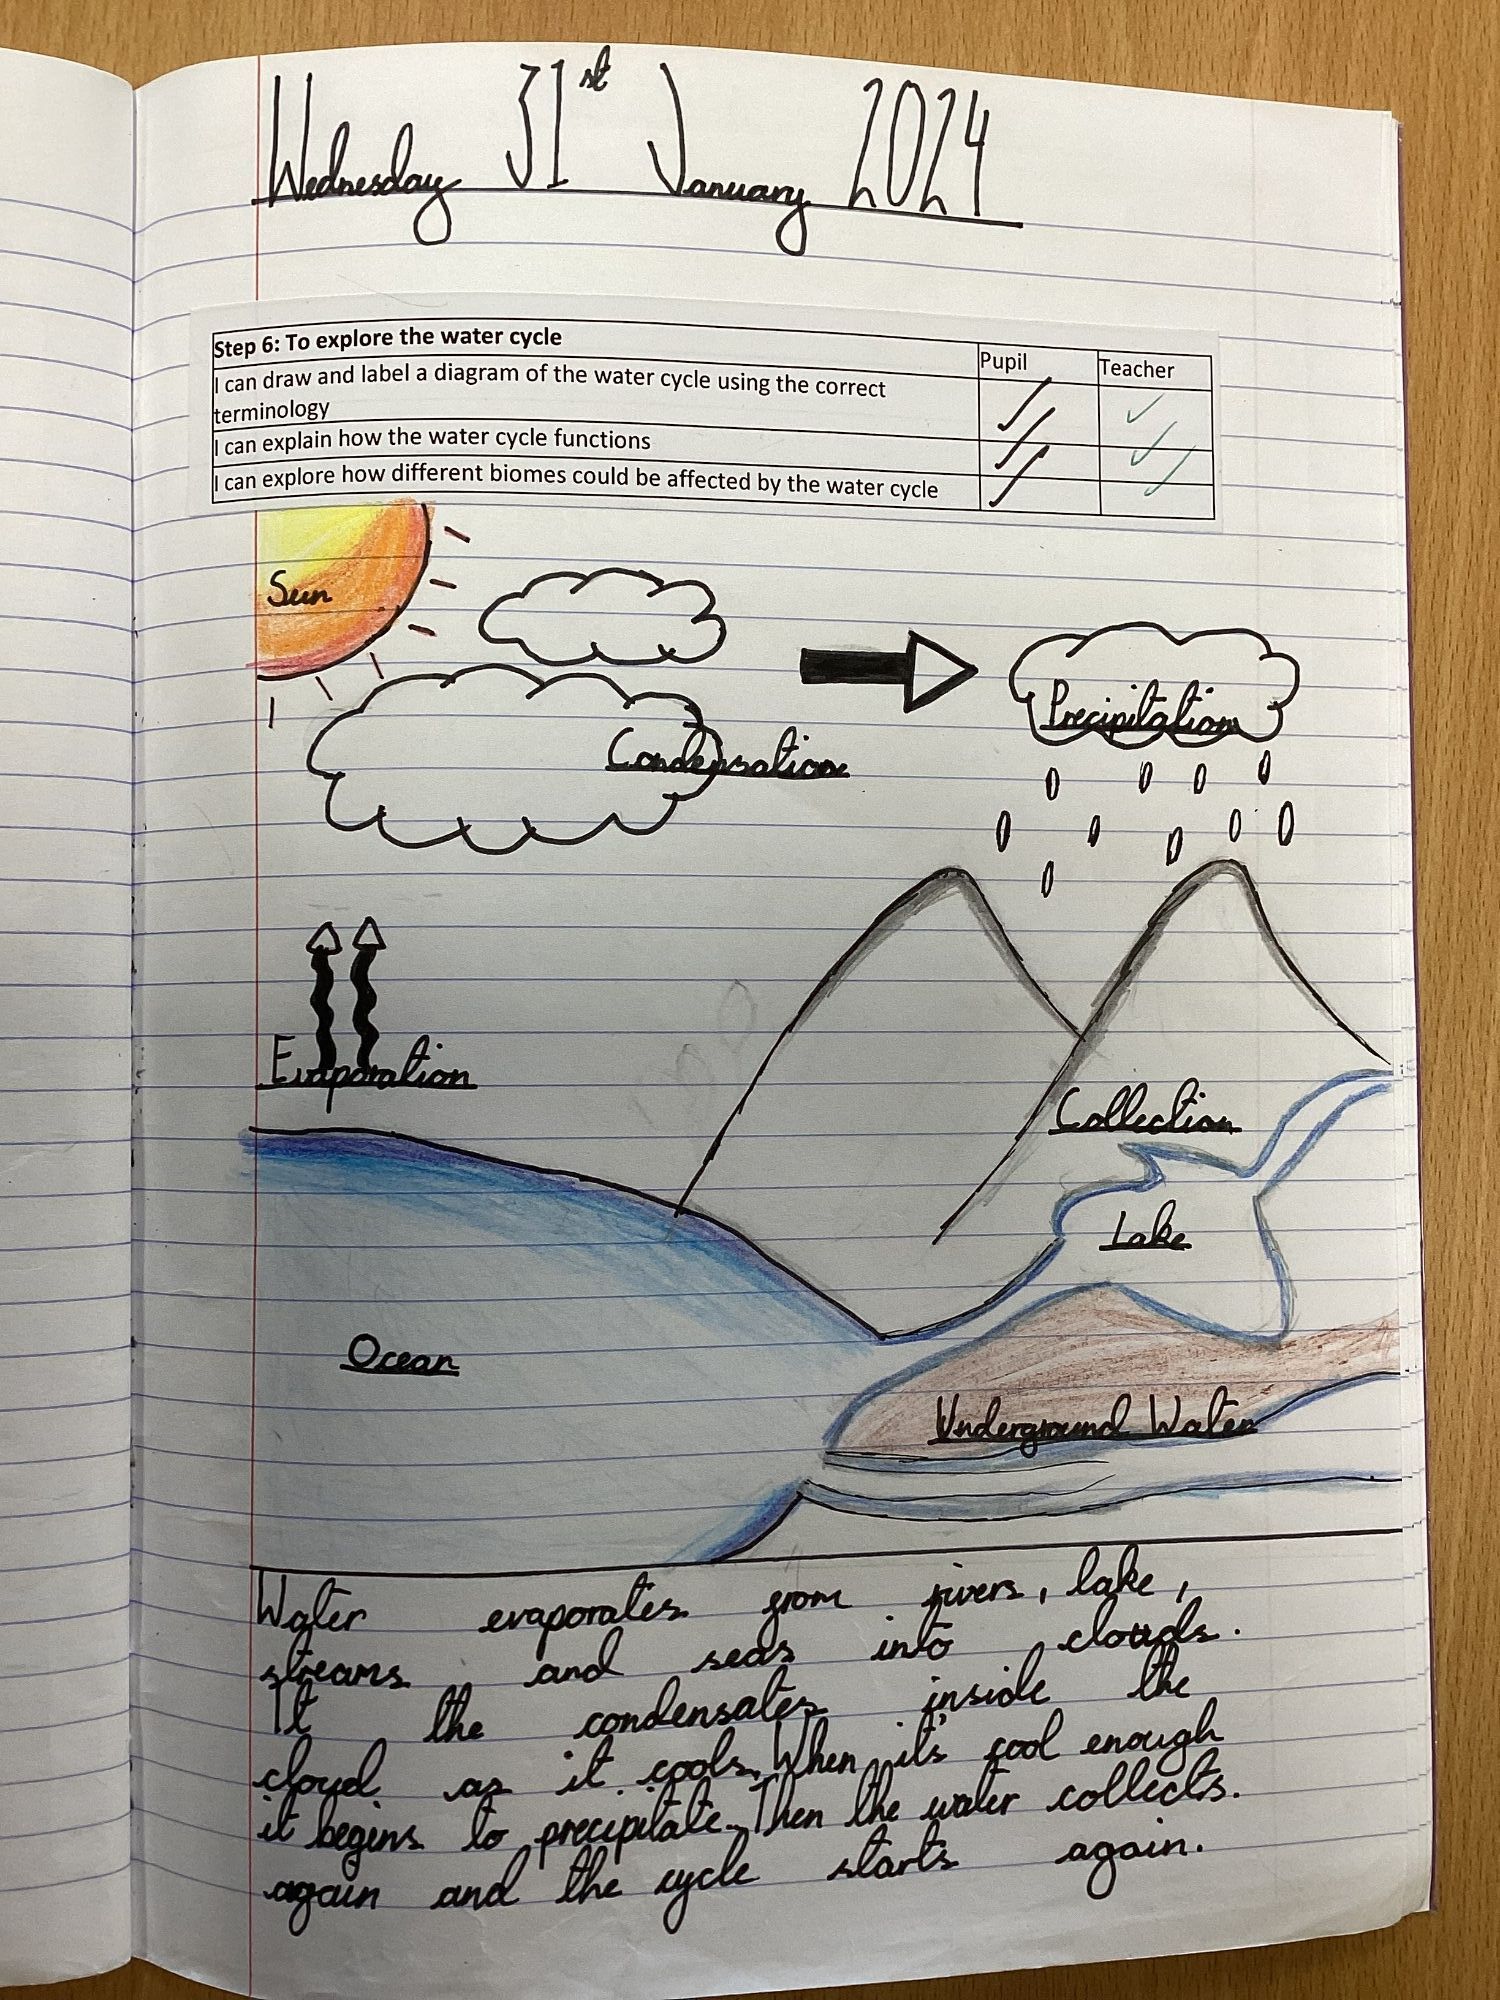 Wednesday 31st January 2024
Step 6: To explore the water cycle
Pupil
Teacher
I can draw and label a diagram of the water cycle using the correct
terminology
I can explain how the water cycle functions
I can explore how different biomes could be affected by the water cycle
Sun
Precipitation
Condensation
Evaporation
Collection
Lake
Ocean
Underground Water
Water evaporates from rivers, lake,
streams and seas into clouds.
It the condensates inside the
cloud as it cools. When it's cool enough
it begins to precipitate. Then the water collects.
again and the cycle starts again.